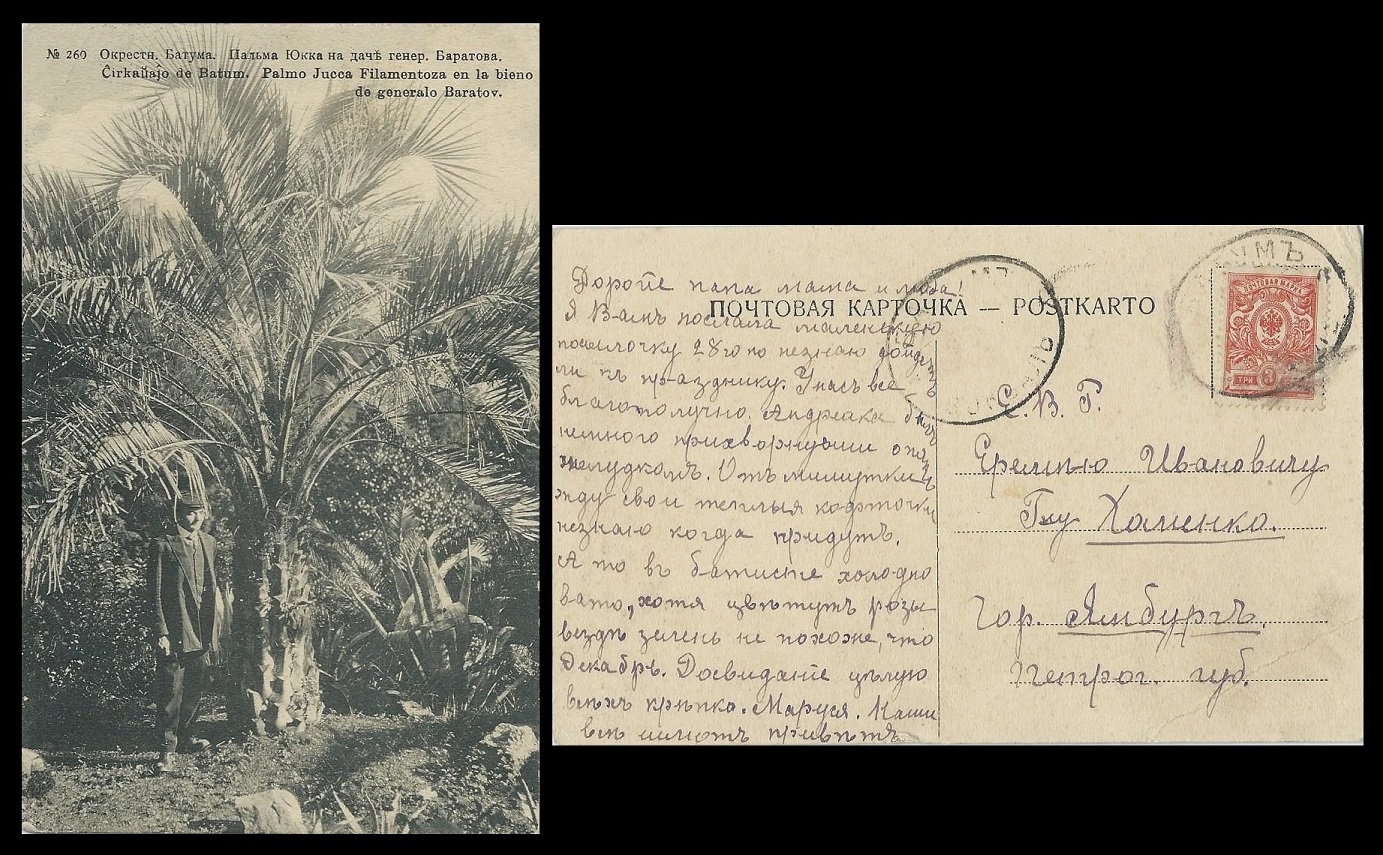 № 260 Окрестн. Батума. Пальма Юкка на дачѣ генер. Баратова.
Ĉirkaŭaĵo de Batum. Palmo Jucca Filamentoza en la bieno
de generalo Baratov.
Дорогіе папа мама и люба!
Я Вамъ послала маленькую
посылочку 28го но незнаю дойдетъ
ли къ празднику. Унасъ все
благополучно. Андрюшка было
немного прихворнувши опять
желудкомъ. Отъ мишутки
жду свои теплыя кофточки
незнаю когда придутъ.
А то въ батисте холодно
вато, хотя цвѣтутъ розы
вездѣ зелень не похоже, что
Декабрь. Досвиданіе цѣлую
всѣхъ крѣпко. Маруся. Наши
всѣ шлютъ привѣтъ.
ПОЧТОВАЯ КАРТОЧКА — POSTKARTO
ПОЧТОВАЯ МАРКА
ТРИ 3
Е. В. Г.
Еремѣю Ивановичу
Гну Хаменко.
Гор. Ямбургъ.
Петрог. губ.